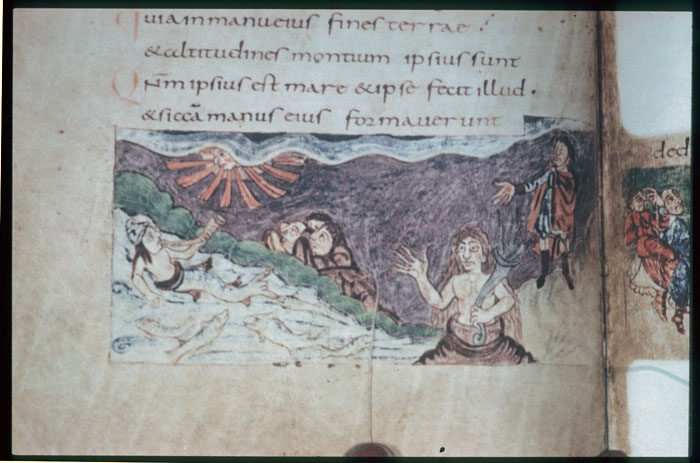 Quia in manu eius fines terrae.
& altitudines montium ipsius sunt
Qnm ipsius est mare & ipse fecit illud.
& siccā manus eius formaverunt
ded